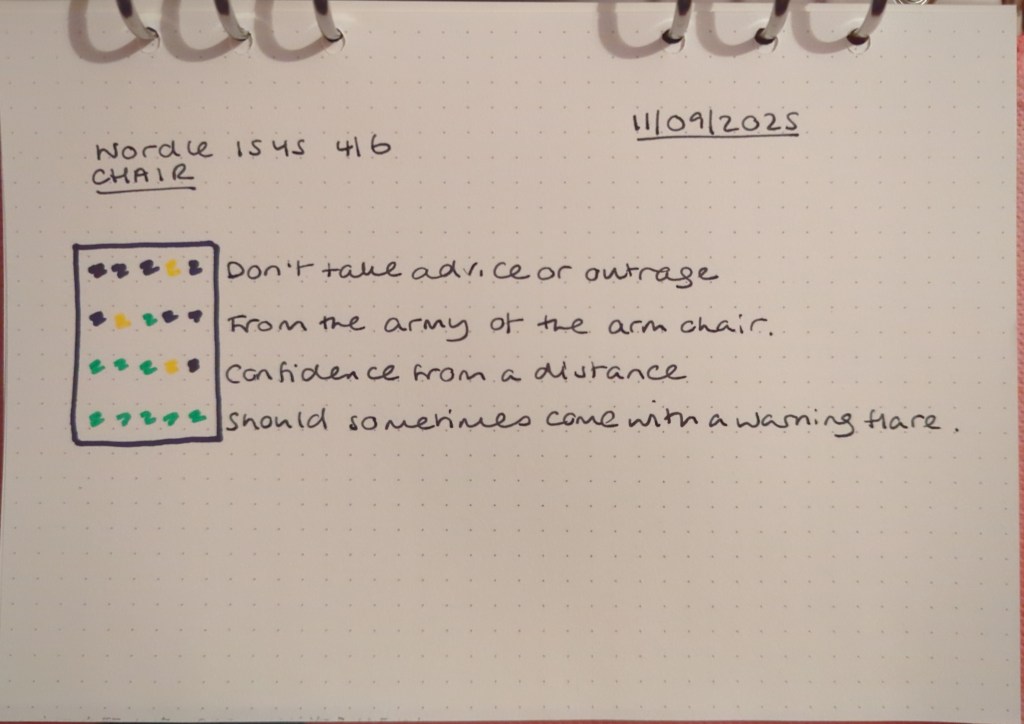 11/09/2025
Wordle 1545 4/6
CHAIR
Don't take advice or outrage
From the army of the arm chair.
Confidence from a distance
Should sometimes come with a warning flare.